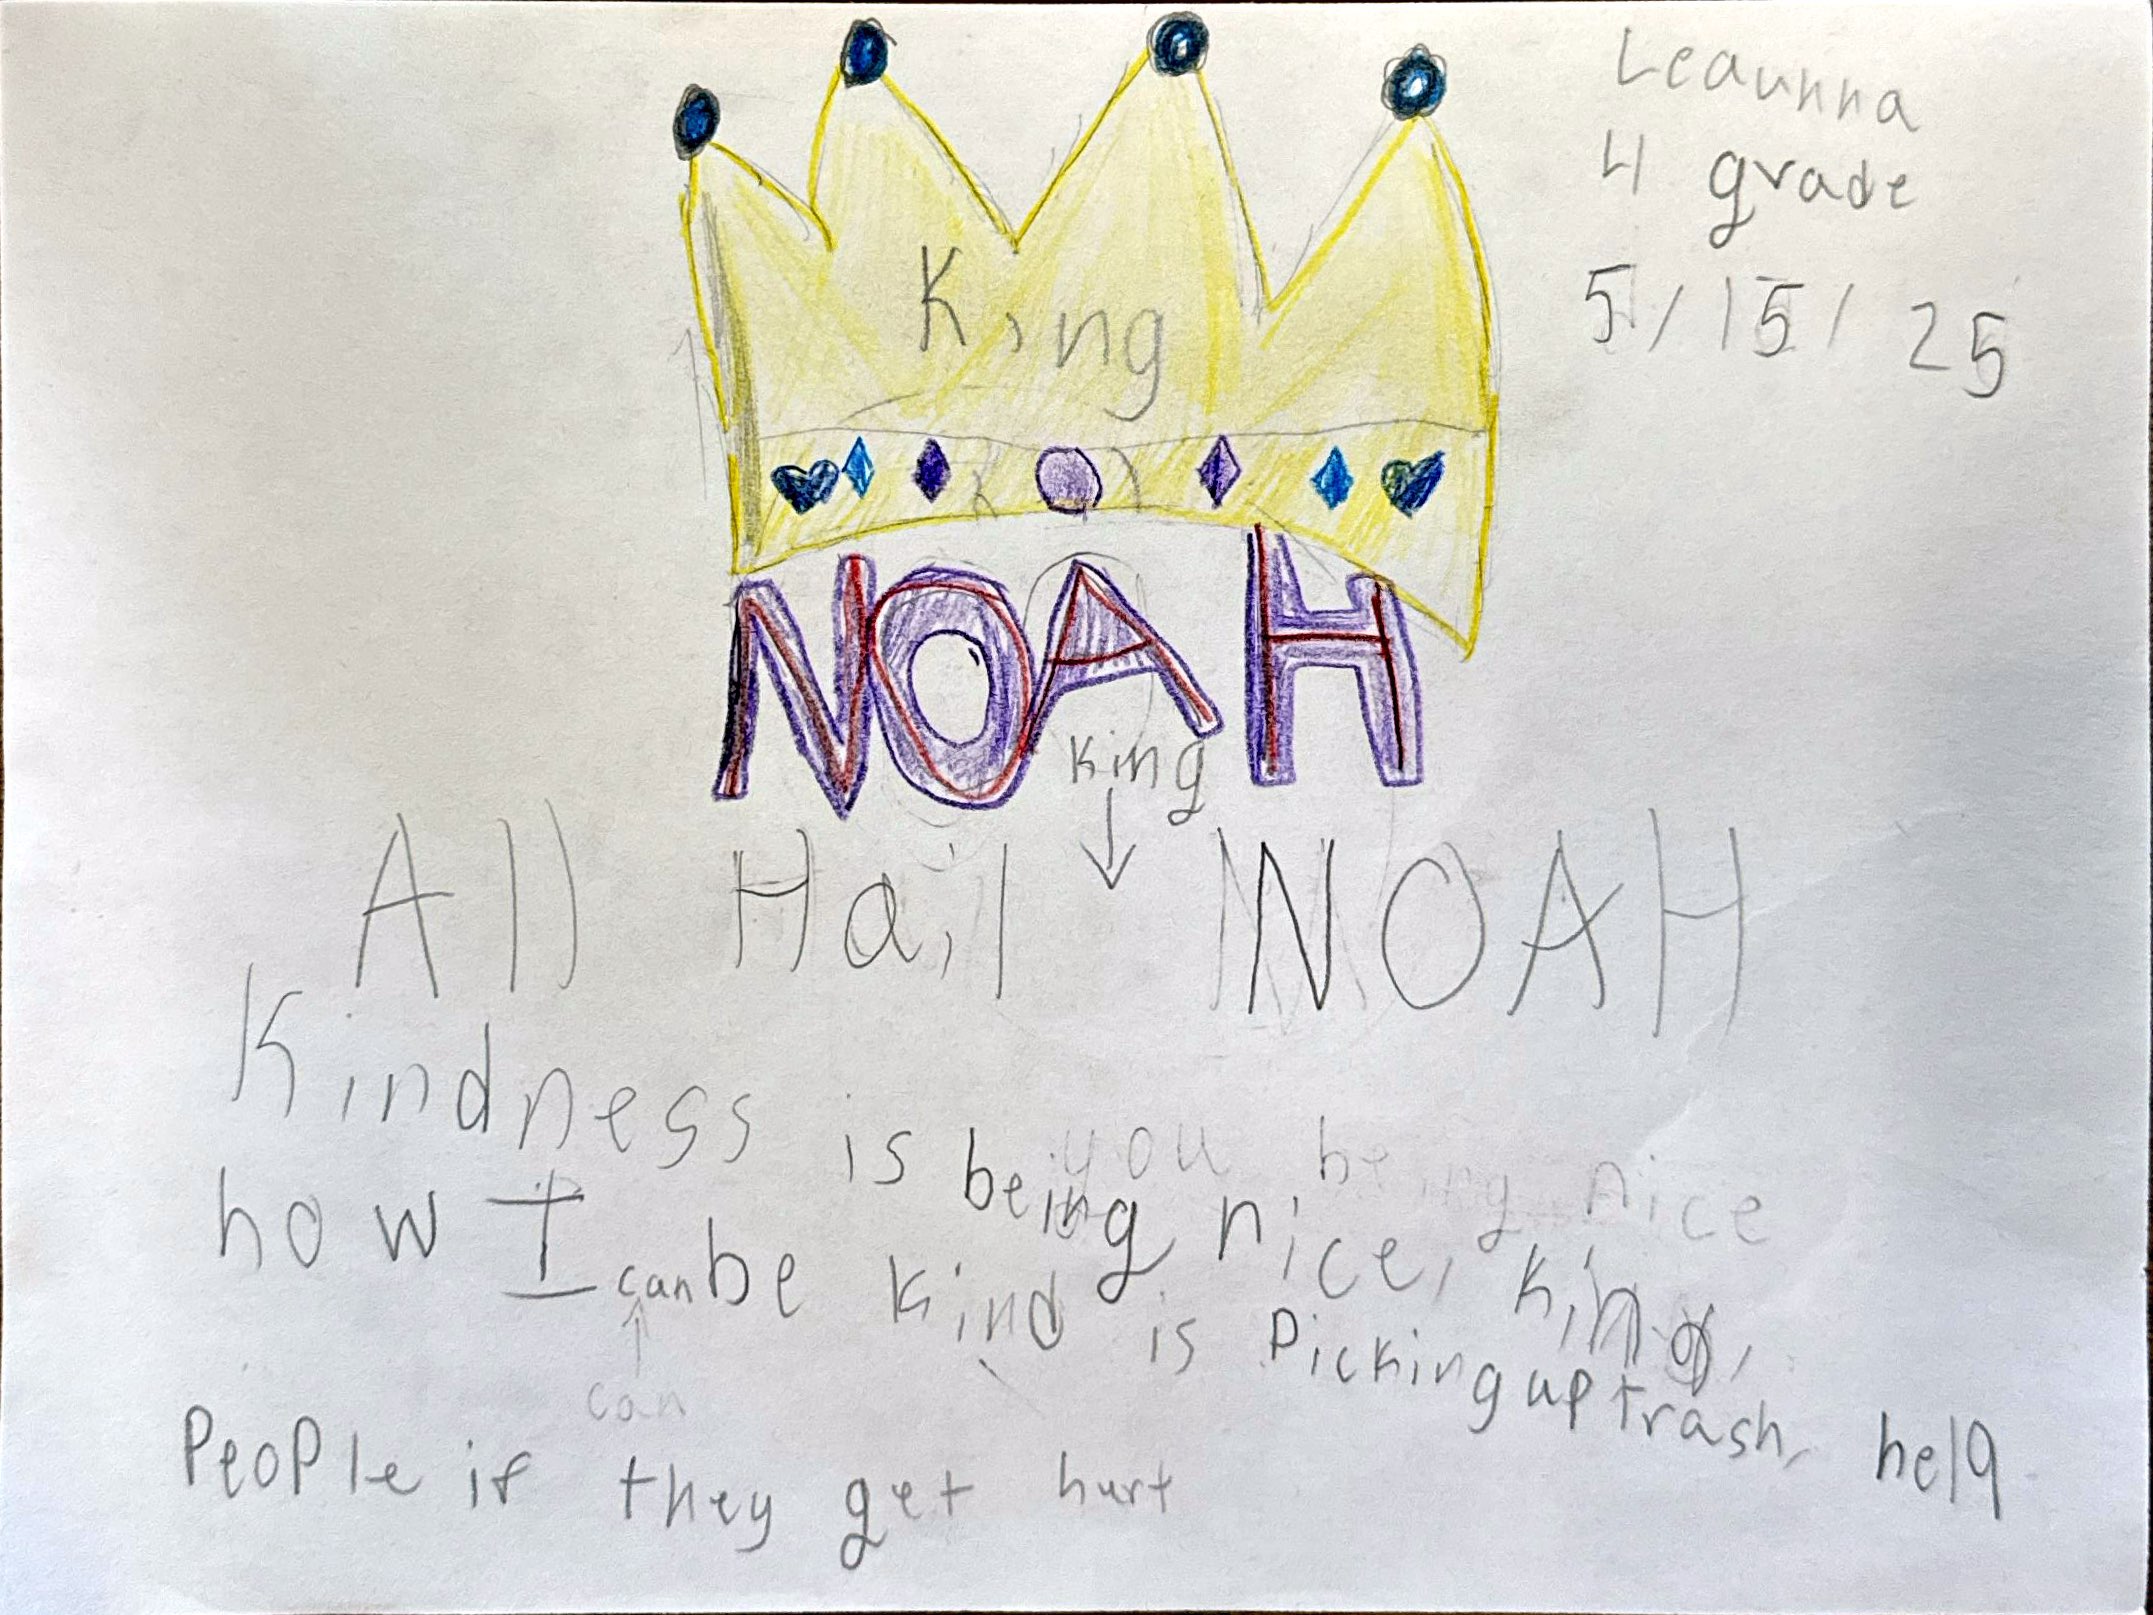 Leaunna
4 grade
5/15/25
King
NOAH
King
All Hail NOAH
Kindness is being nice, kind,
how I can be kind is Picking up trash, help
People if they get hurt